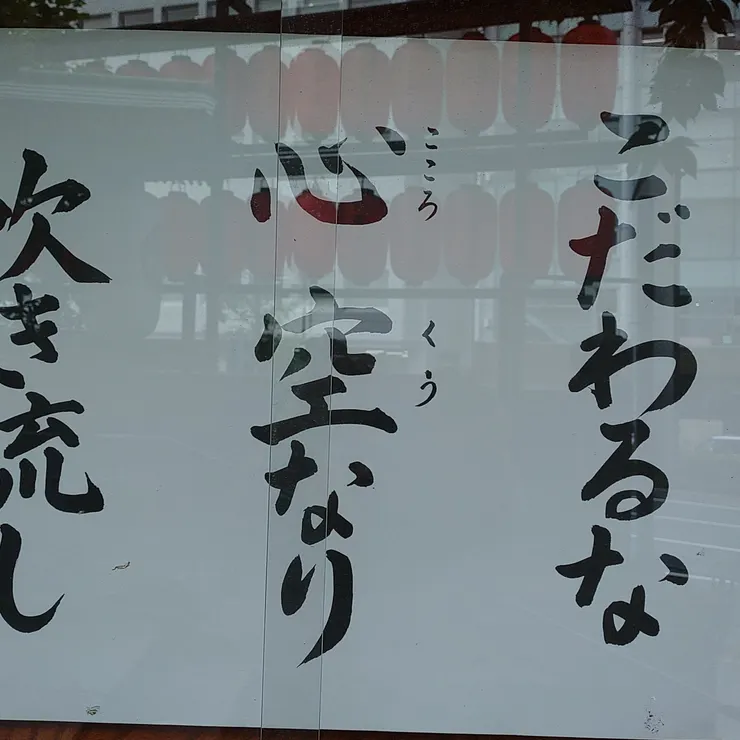 こだわるな
こころ くう
心 空なり
吹き流し